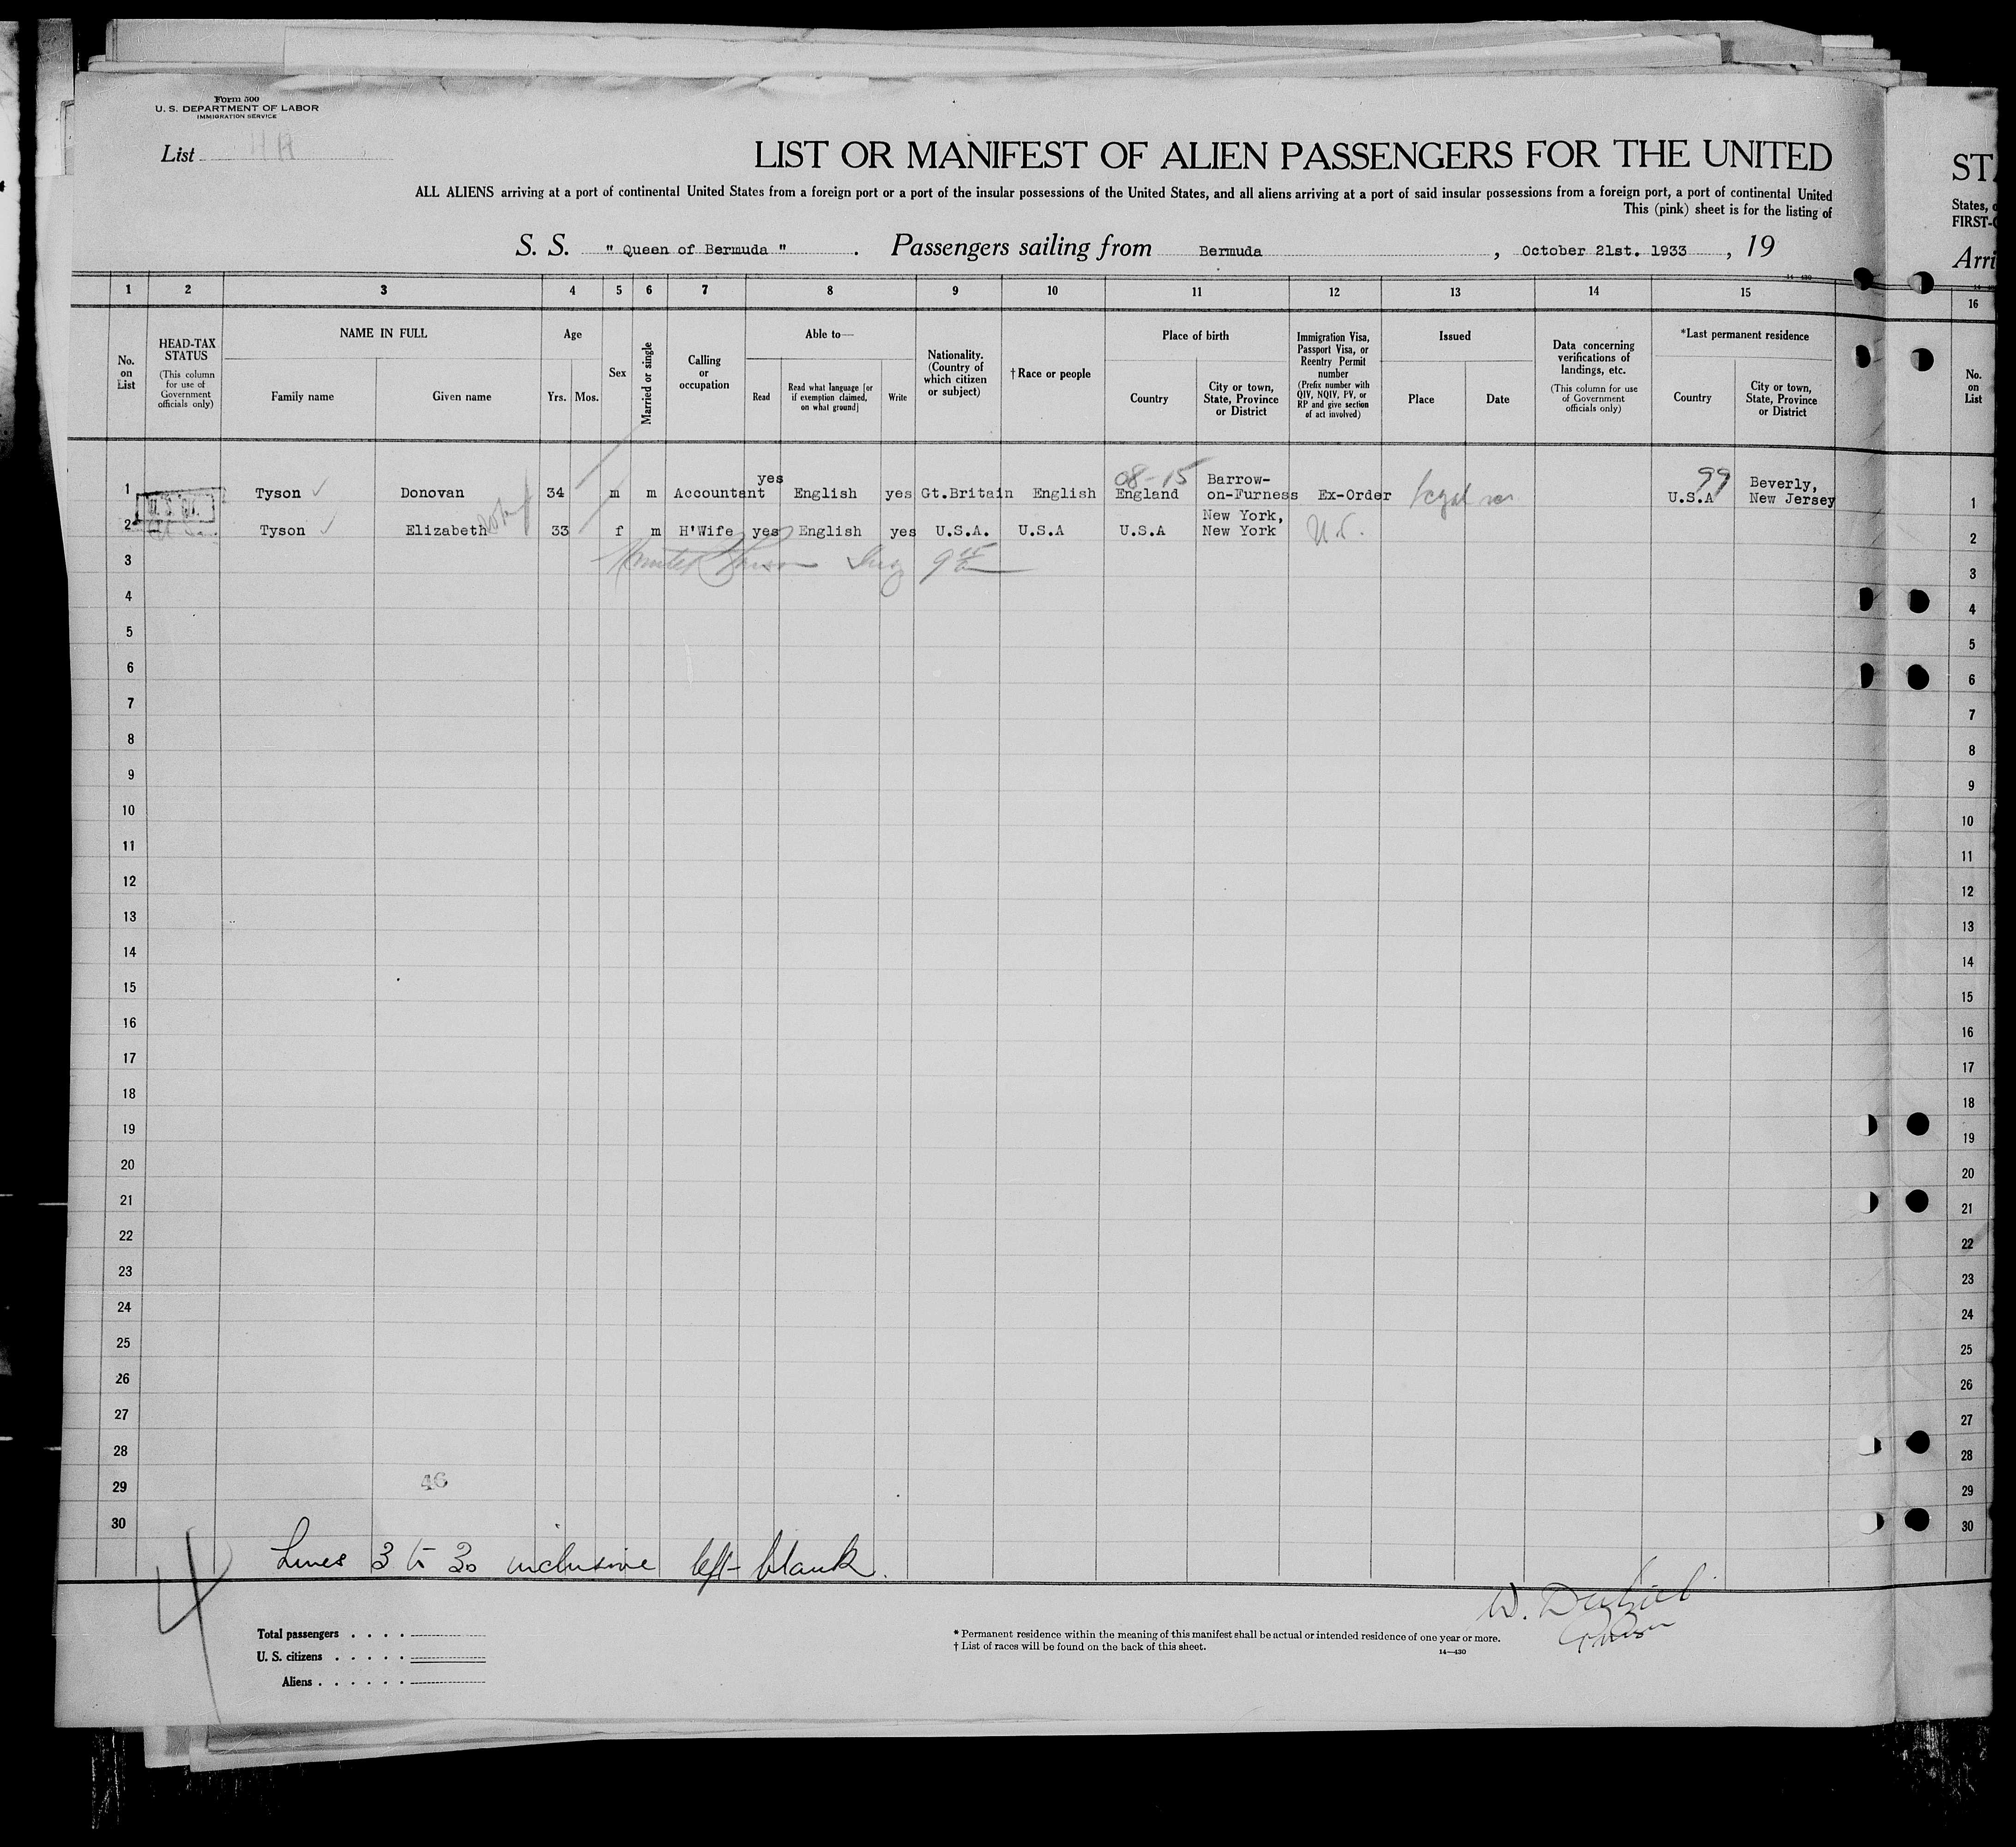 Form 500
U. S. DEPARTMENT OF LABOR
IMMIGRATION SERVICE
List
LIST OR MANIFEST OF ALIEN PASSENGERS FOR THE UNITED
ALL ALIENS arriving at a port of continental United States from a foreign port or a port of the insular possessions of the United States, and all aliens arriving at a port of said insular possessions from a foreign port, a port of continental United
This (pink) sheet is for the listing of
S. S. " Queen of Bermuda " . Passengers sailing from Bermuda , October 21st. 1933 , 19
14—430
1 2 3 4 5 6 7 8 9 10 11 12 13 14 15
No. on List
HEAD-TAX STATUS
(This column for use of Government officials only)
NAME IN FULL
Family name
Given name
Age
Yrs. Mos.
Sex
Married or single
Calling or occupation
Able to—
Read
Read what language [or if exemption claimed, on what ground]
Write
Nationality. (Country of which citizen or subject)
† Race or people
Place of birth
Country
City or town, State, Province or District
Immigration Visa, Passport Visa, or Reentry Permit number
(Prefix number with QIV, NQIV, PV, or RP and give section of act involved)
Issued
Place
Date
Data concerning verifications of landings, etc.
(This column for use of Government officials only)
*Last permanent residence
Country
City or town, State, Province or District
1 Tyson Donovan 34 m m Accountant yes English yes Gt.Britain English 08-15 England Barrow-on-Furness Ex-Order 99 U.S.A Beverly, New Jersey
2 Tyson Elizabeth 33 f m H'Wife yes English yes U.S.A. U.S.A U.S.A New York, New York
3
4
5
6
7
8
9
10
11
12
13
14
15
16
17
18
19
20
21
22
23
24
25
26
27
28
29
46
30
Lines 3 to 30 inclusive left blank.
Total passengers . . . .
U. S. citizens . . . . .
Aliens . . . . . .
* Permanent residence within the meaning of this manifest shall be actual or intended residence of one year or more.
† List of races will be found on the back of this sheet.
14—430
W.
STA
States, o
FIRST-C
Arri
16
No. on List
1
2
3
4
5
6
7
8
9
10
11
12
13
14
15
16
17
18
19
20
21
22
23
24
25
26
27
28
29
30